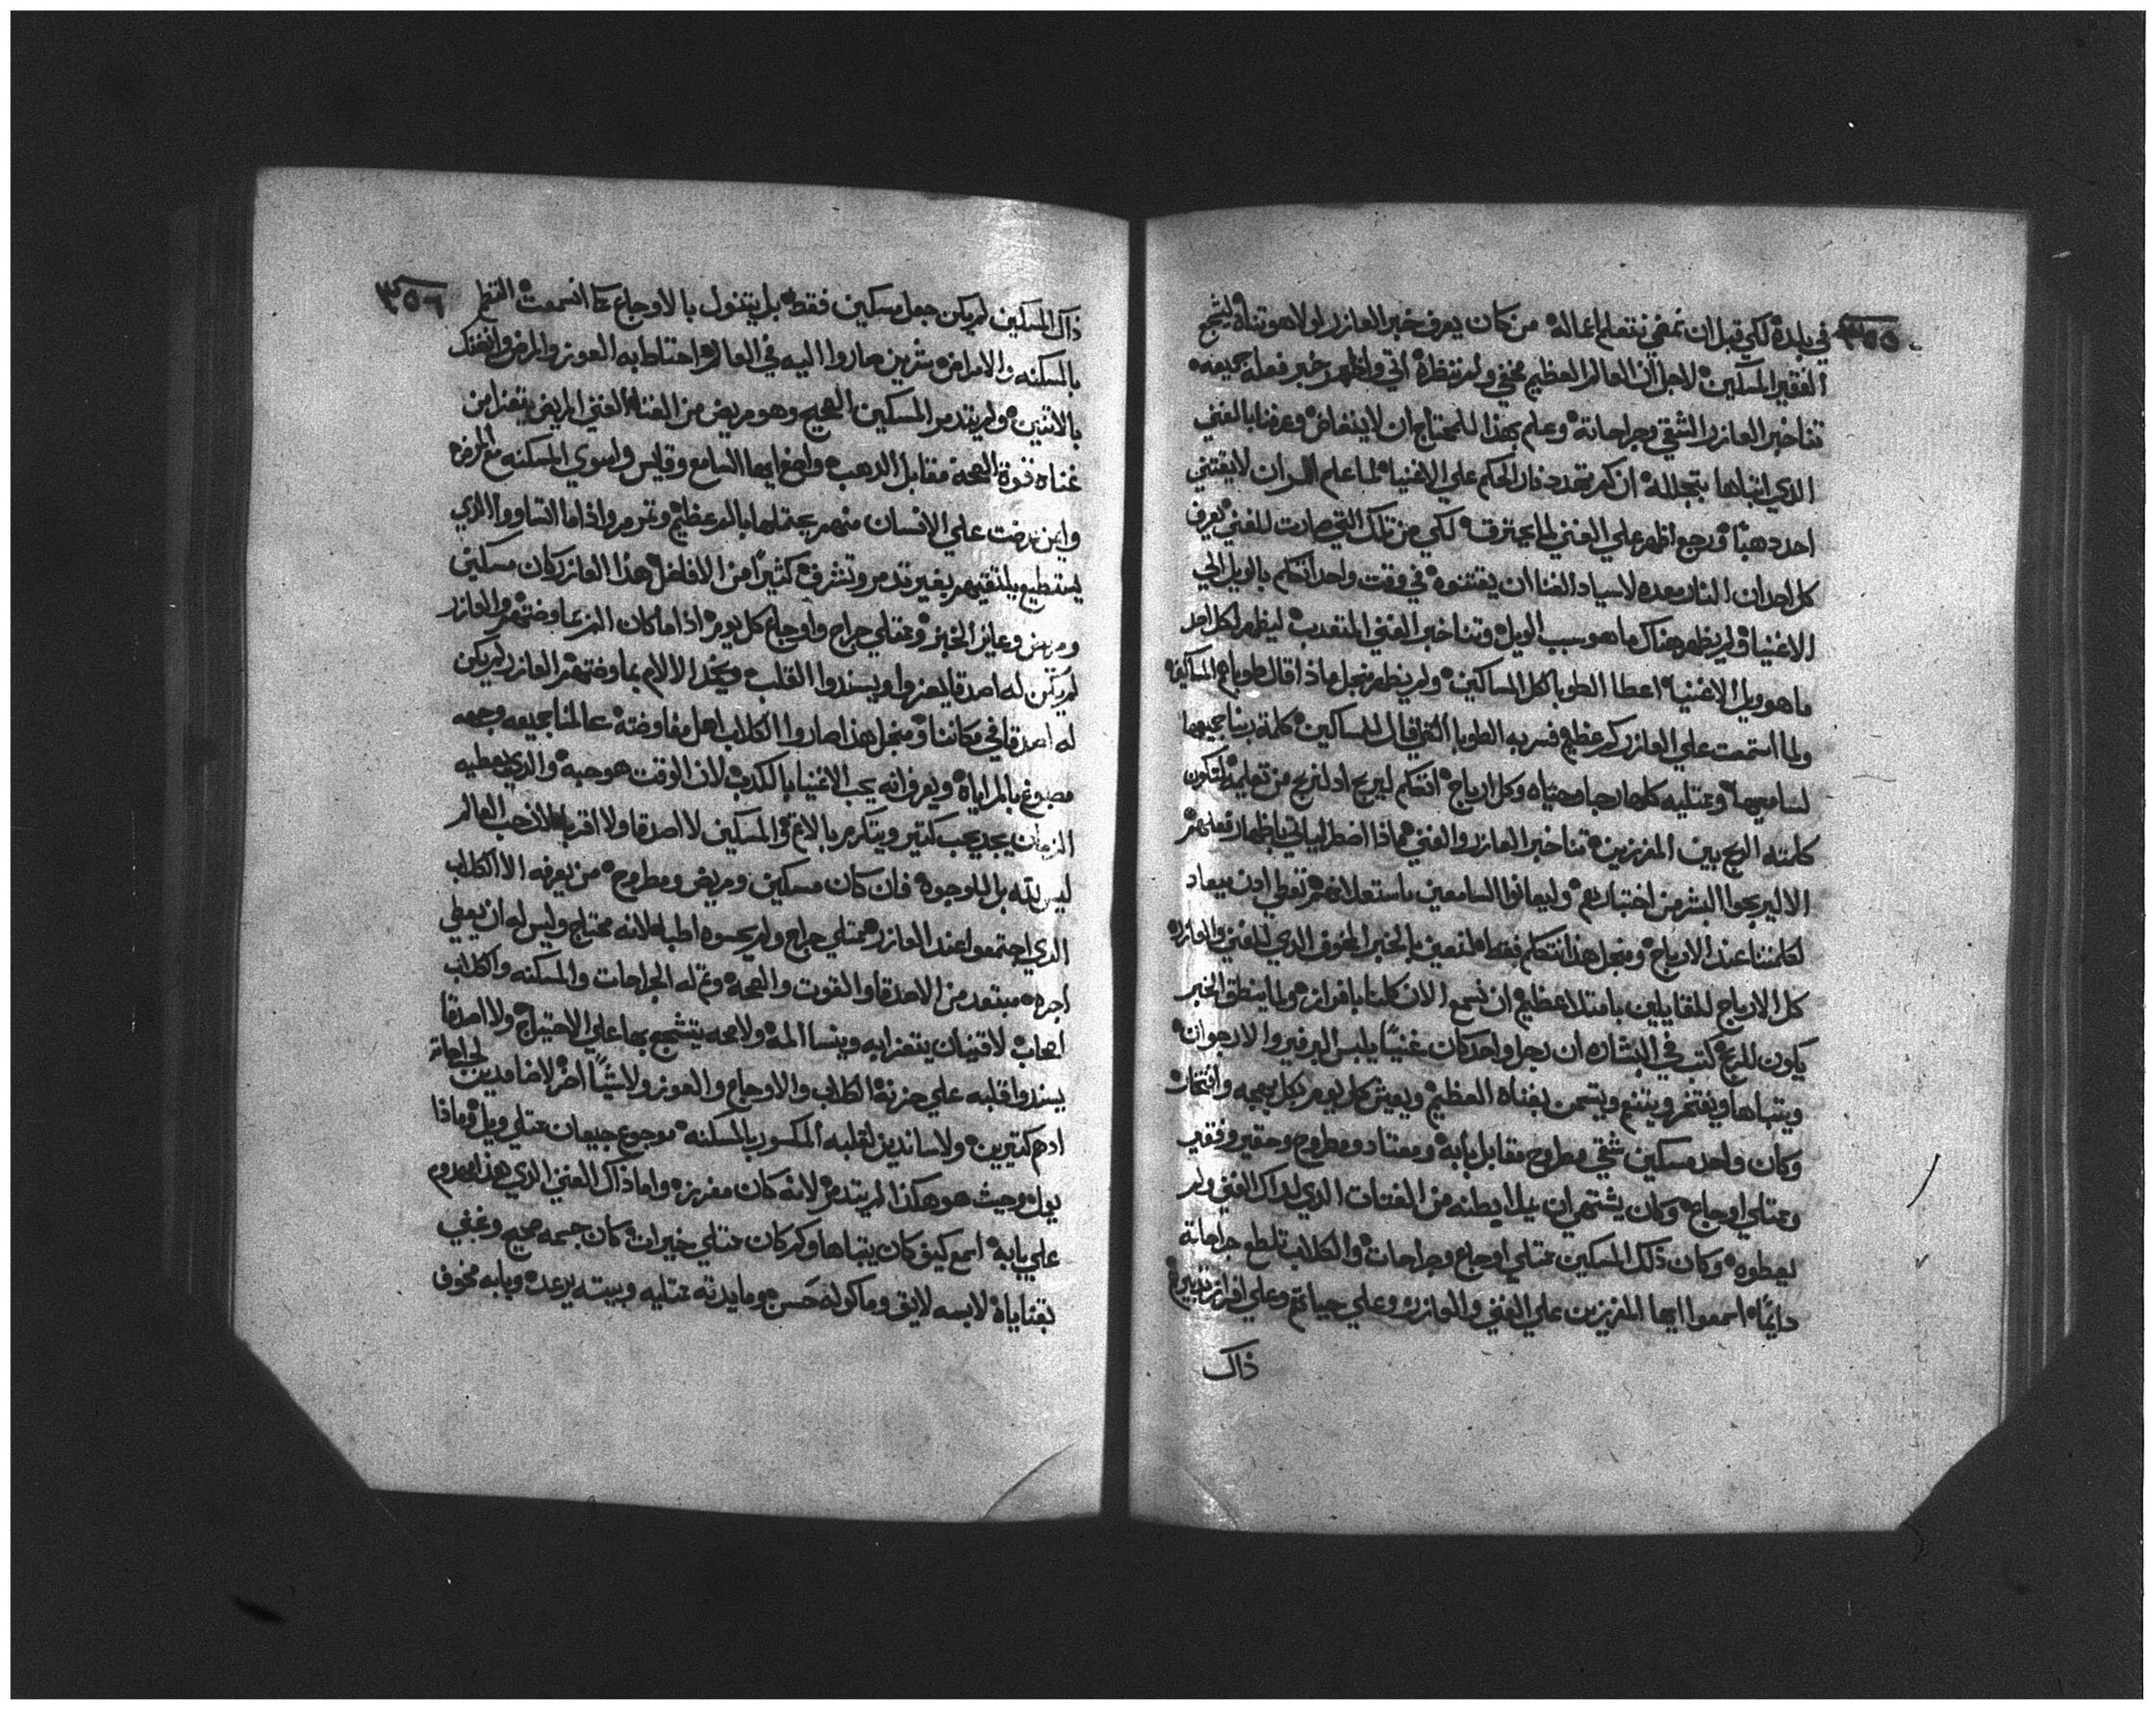 ٣٥٥
في بلده لكي قبل ان نمضي نتعلم اعماله من كان يعرف خبر العازر لولا هو تناه ليشجع
الفقير المسكين لاجل ان العالم العظيم مخفي ولم تنتظره اتي واظهر خبر فعله جميعه
تنا خبر العازر الشقي بجراحاته وعلم بهذا للمحتاج ان لا ينغاض وعرفنا بالغني
الذي اتباها بتجلله ان كم تحدد نار الحكم علي الاغنيا لما علم الرب ان لا يقتني
احد دهبًا ورجع اظهر علي الغني لما يحترق لكي من تلك التي صارت للغني يعرف
كل احد ان النار معده لاسياد الغنا ان يقتنوه في وقت واحد اتكلم بالويل الي
الاغنيا ولم يظهر هناك ما هو سبب الويل وتنا خبر الغني المتعدب ليظهر لكل احد
ما هو ويل الاغنيا اعطا الطوبا لكل المساكين ولم يظهر منجل ماذا قال طوباهم المساكين
ولما استمعت علي العازر كم عظيم فسر به الطوبا التي قال للمساكين كلمة ربنا جميعها
لسامعيها وممتليه كلها رجا وحياه وكل ارباح اتتكلم ليربح اد لنربح من تعليمه لتكون
كلمته الربح بين المفرزين تنا خبر العازر والغني ماذا اضطر لياتي باظهار فعلهم
الا ليربحوا البشر من اختبارهم وليعانوا السامعين باستعلانهم تعطي ادن ميعاد
لكلمتنا عند الارباح ومنجل هذا نتكلم فقط منتفعين بالخبر المخوف الذي للغني والعازر
كل الارباح للقايلين بامتلا عظيم ان نسمع الان كلنا بافراز ولما ينطق الخبر
يكون للربح كتب في البشاره ان رجل واحد كان غنيًا يلبس البرفير والارجوان
ويتباها ويفتخر ويتنعم ويتسمن بغناه العظيم ويعيش كل يوم بكل بهجه وافتخار
وكان واحد مسكين شقي مطروح مقابل بابه ومعتاد ومطروح وحقير وفقير
وممتلي اوجاع وكان يشتهي ان يملا بطنه من الفتات الذي لداك الغني ولم
يعطوه وكان ذلك المسكين ممتلي اوجاع وجراحات والكلاب تلطع جراحاته
دايمًا اسمعوا ايها المفرزين علي الغني والعازر وعلي حياتهم وعلي افراز تدبيرهم
ذاك
٣٥٦
ذاك المسكين لم يكن جعل مسكين فقط بل يتنول بالاوجاع كما انسمعت انضم
بالمسكنه والامراض شرين صاروا اليه في العالم احتاط به العوز والمرض وانفتك
بالاتنين ولم يتدمر المسكين الصحيح وهو مريض من الغنا الغني المريض يتعزا من
غناه قوة الصحه مقابل الدهب واضع ايها السامع وقايس واسوي المسكنه مع المرض
واين عرضت علي الانسان منهم يحتملها بالم عظيم وتمرمر واذا ما اتساووا الذي
يستطيع يلتقيهم بغير تدمر وتشرف كثيرًا من الافاضل هذا العازر كان مسكين
ومريض وعايز الخبز وممتلي جراح واوجاع كل يوم اذا ما كان الم يعاوضتهم والعازر
لم يكن له اصدقا يعزوا ويسندوا القلب ويخدا الالام بمعاوضتهم العازر لم يكن
له اصدقا في مكاننا ومنجل هذا صاروا الكلاب اهل مفاوضته عالمنا جميعه وجهه
مصبوغ بالمراياه ويعرف انه يحب الاغنيا بالكدب لان الوقت هو حبه والذي يعطيه
الزمان يجد يحب كتير ويتكرم بالاخوه المسكين لا اصدقا ولا اقربا له لان حب العالم
ليس بته بل للوجوه فان كان مسكين ومريض ومطروح من يعرفه الا الكلاب
الذي اجتمعوا عند العازر ممتلي جراح ولم يحسوه اطبا لانه محتاج وليس له ان يعطي
اجره مبتعد من الاصدقا والقوت والصحه وتم له الجراحات والمسكنه والكلاب
اصحاب لا قنيان يتعزا به وينسا المه ولا صحه يتشجع بها علي الاحتياج ولا اصدقا
يسندوا قلبه علي حزنه الكلاب والاوجاع والعوز ولا شيًا اخر لا ضامدين لجراحاته
ادهم كتيرين ولا ساندين لقلبه المكسور بالمسكنه موجوع جيعان ممتلي ويل وماذا
يول وحيث هو هكذا لم يتدمر لانه كان مفرزه واما ذاك الغني الذي هذا مطروح
علي بابه اسمع كيف كان يتباها وكم كان ممتلي خيرات كان جسمه صحيح وغني
بقناياه لابسه لايق وماكوله حسن ومايدته ممتليه وبيته يرعد وبابه مخوف